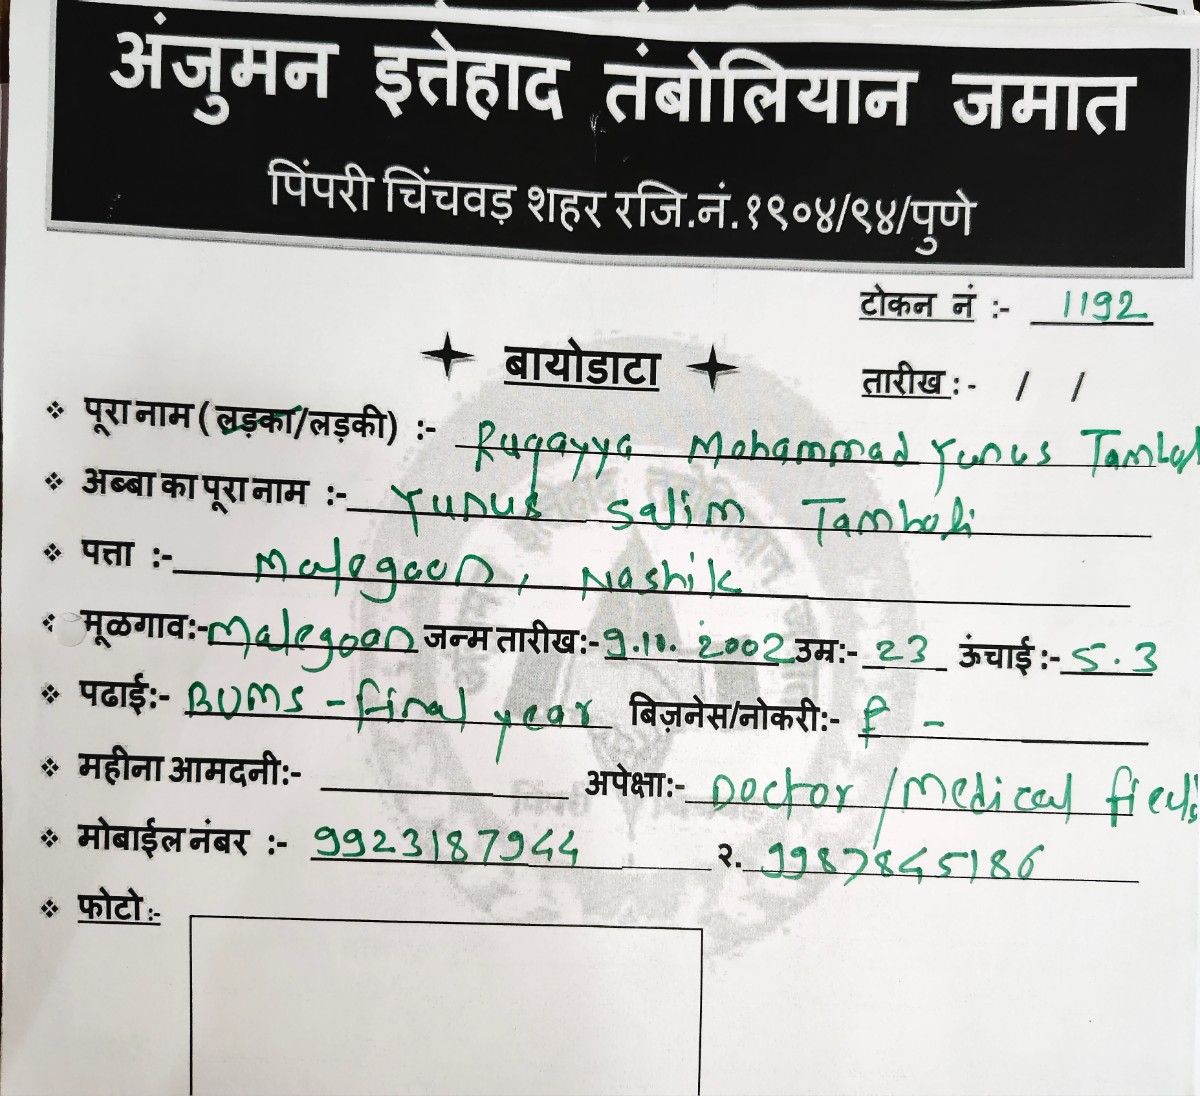 अंजुमन इत्तेहाद तंबोलियान जमात
पिंपरी चिंचवड़ शहर रजि.नं.१९०४/९४/पुणे
टोकन नं :- 1192
बायोडाटा
तारीख :- / /
पूरा नाम ( लड़का/लड़की) :- Ruqayya Mohammad Yunus
अब्बा का पूरा नाम :- Yunus Salim Tamboli
पत्ता :- Malegaon, Nashik
मूळगाव:- Malegaon जन्म तारीख:- 9.10.2002 उम्र:- 23 ऊंचाई :- 5.3
पढाई:- BUMS - final year बिज़नेस/नोकरी:- -
महीना आमदनी:- अपेक्षा:- Doctor / Medical field
मोबाईल नंबर :- 9923187944 २. 9987845186
फोटो:-